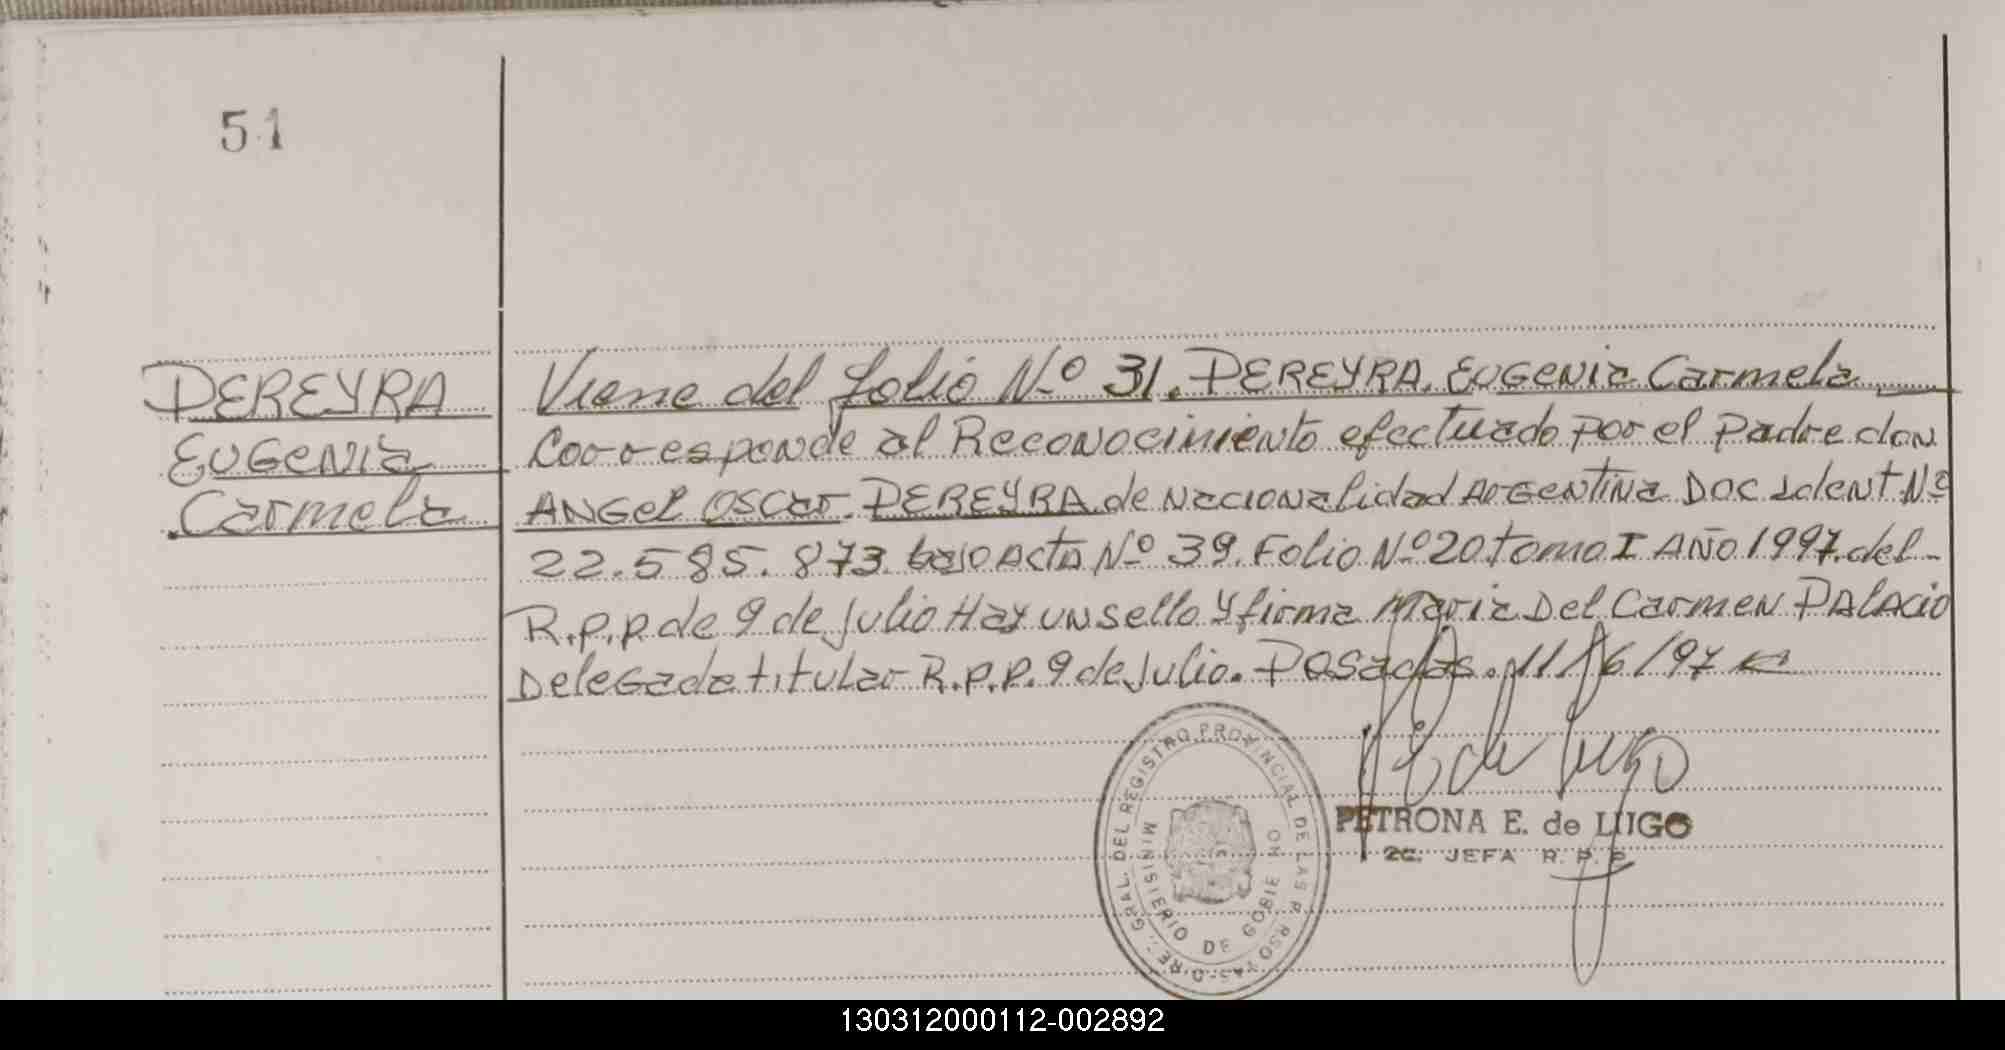 51
PEREYRA
EUGENIA
Carmela
Viene del folio Nº 31. PEREYRA. EUGENIA Carmela
Corresponde al Reconocimiento efectuado por el Padre don
ANGEL OSCAR PEREYRA de Nacionalidad ARGENTINA Doc Ident Nº
22.585.873 bajo Acta Nº 39. Folio Nº 20 tomo I AÑO 1997. del
R.P.P de 9 de Julio Hay un sello y firma Maria Del Carmen PALACIO
Delegada titular R.P.P. 9 de Julio. Posadas. 11/6/97
E de Lugo
PETRONA E. de LUGO
2ª. JEFA R. P. P.
GRAL. DEL REGISTRO PROVINCIAL DE LAS
MINISTERIO DE GOBIE NO
130312000112-002892